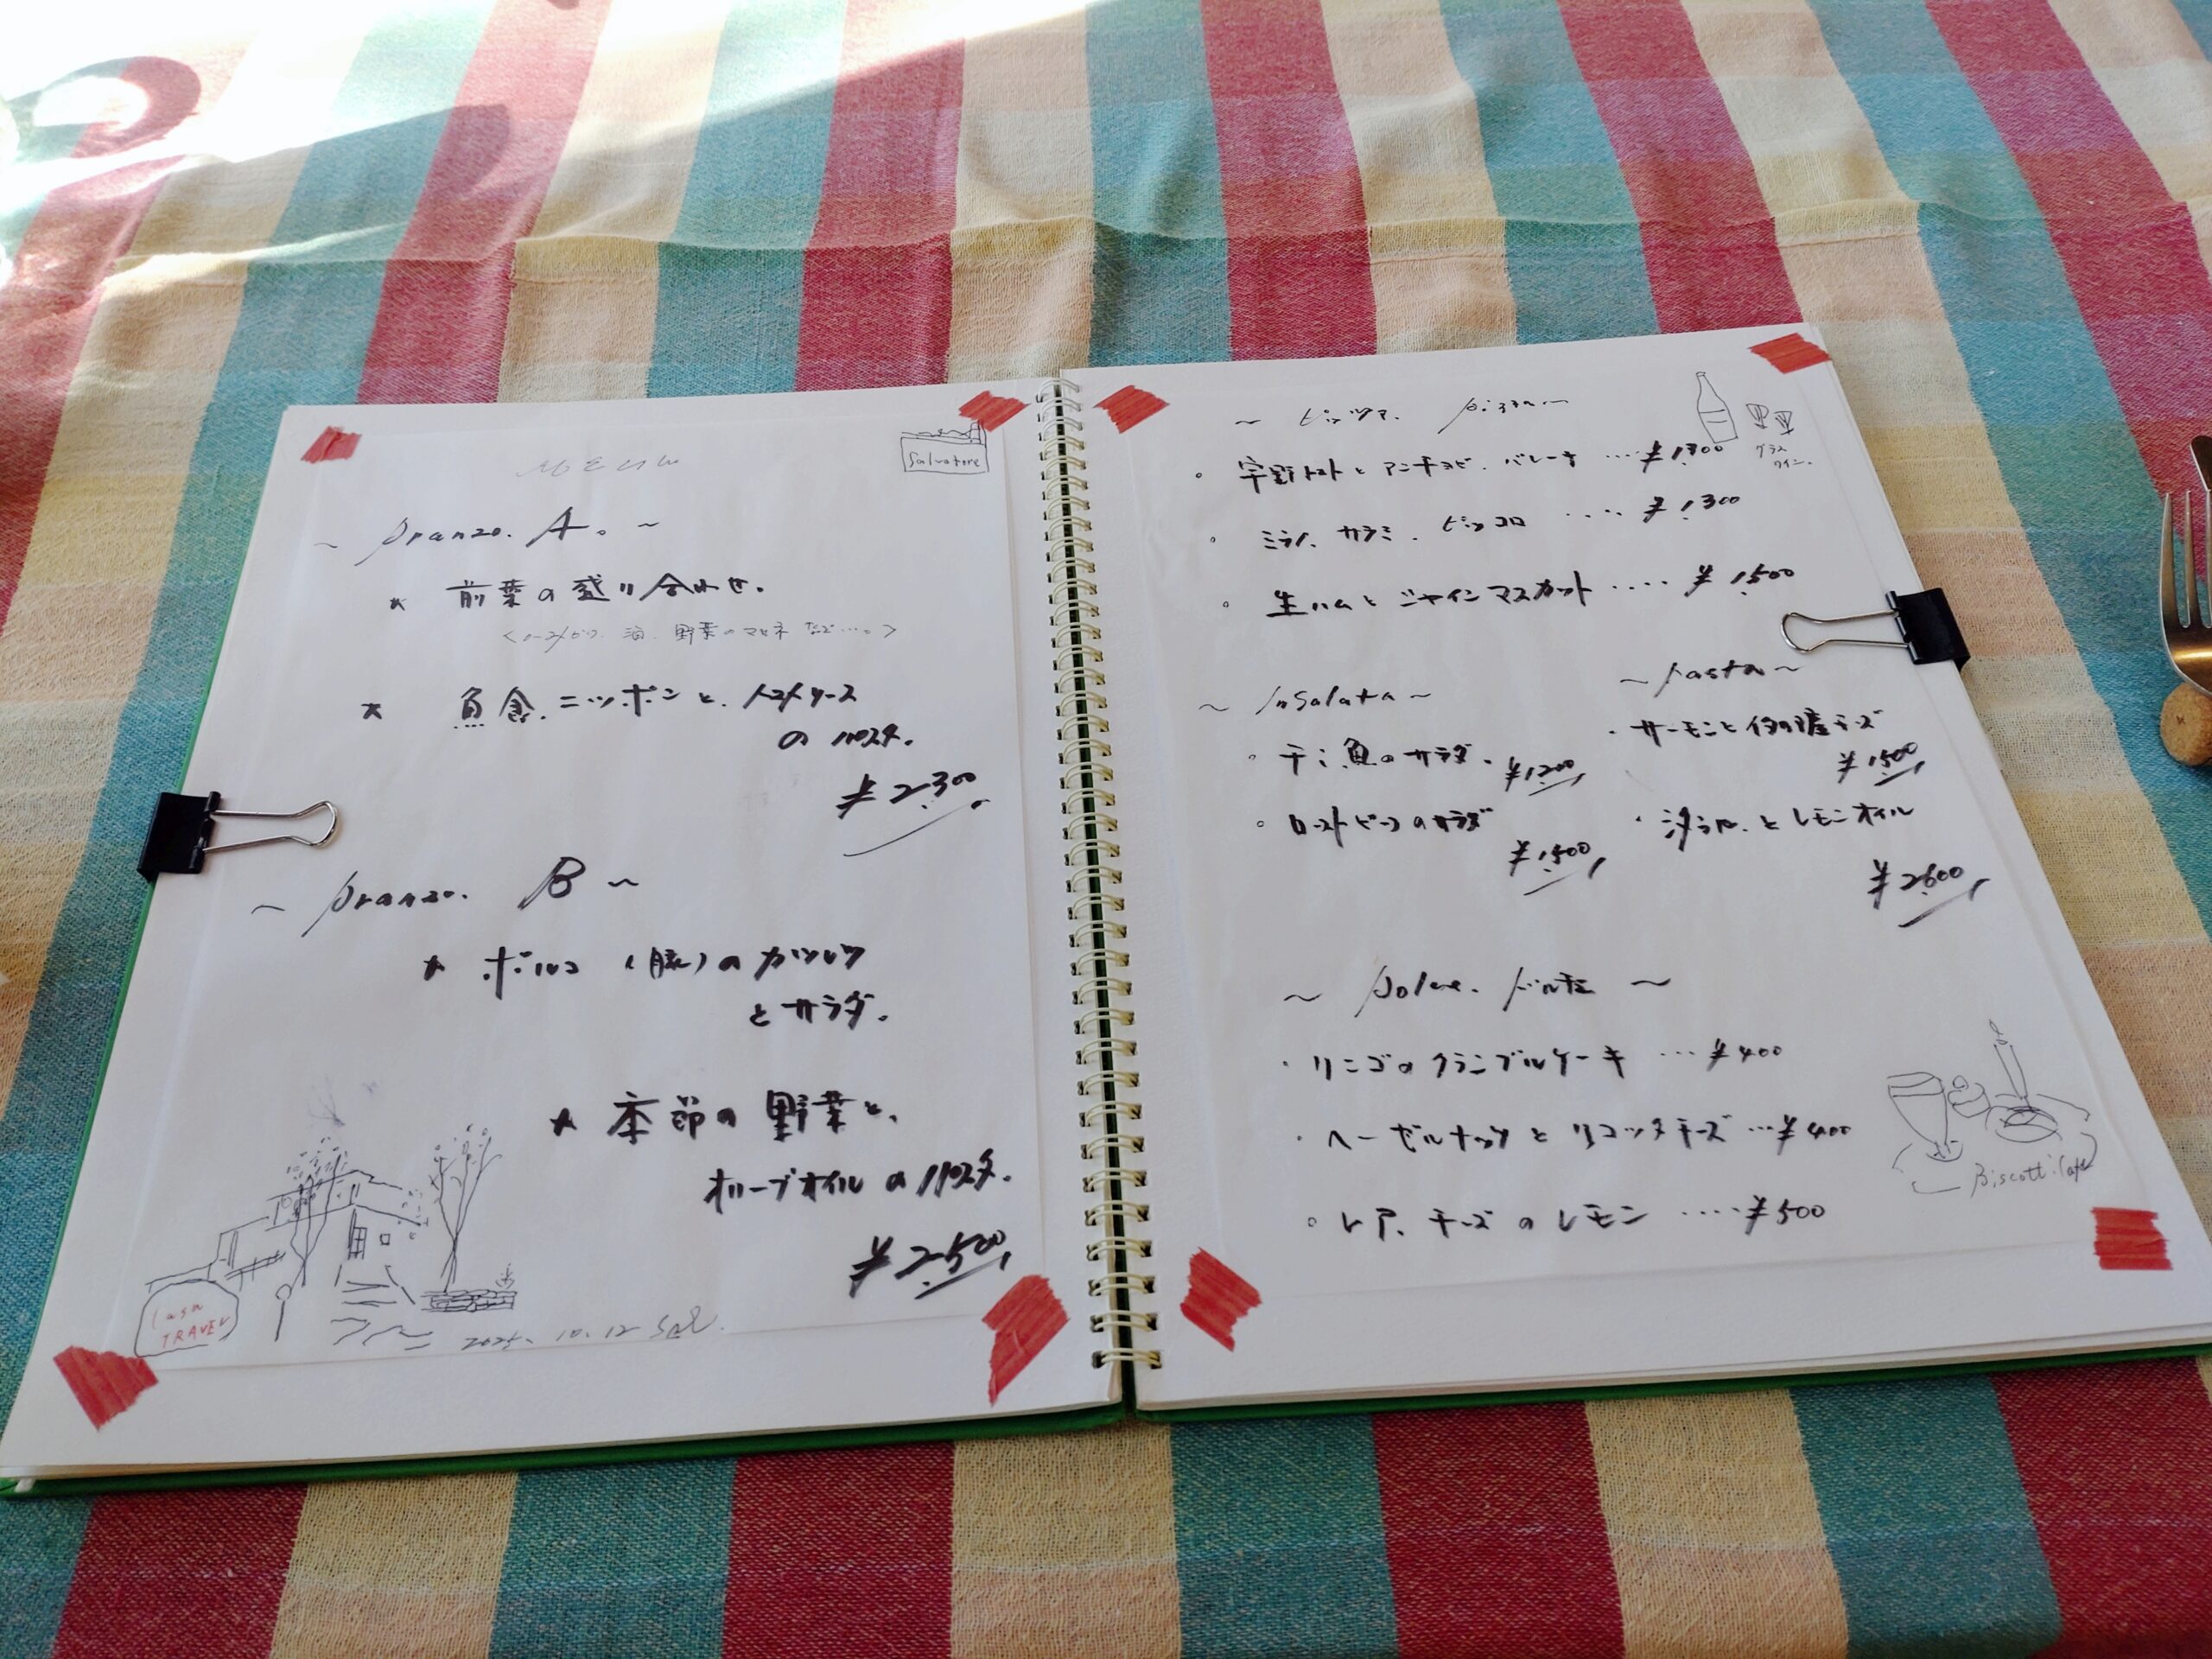 MENU
Salvatore
~ Pranzo. A. ~
* 前菜の盛り合わせ.
野菜のマリネ など…。>
* 魚介.ニッポンと.トマトソース
のパスタ.
¥2.300
~ Pranzo. B ~
* ポルコ (豚)のカツレツ
とサラダ.
* 季節の野菜と、
オリーブオイルのパスタ.
¥2.500
Casa
TRAVEL
10.12
~ ピッツァ. Pizza ~
グラス
ワイン.
。 宇野トマトとアンチョビ. ….¥1.300
。 ミラノ. サラミ. ピッコロ ….. ¥1.300
。 生ハムとシャインマスカット ….. ¥1.500
~ Insalata ~
。 干し魚のサラダ. ¥1200
。 ローストビーフのサラダ
¥1.500
~ Pasta ~
・ サーモンと チーズ
¥1500
・ とレモンオイル
¥2.600
~ Dolce. ドルチェ ~
・ リンゴのクランブルケーキ …¥400
・ ヘーゼルナッツとリコッタチーズ …¥400
。 レア.チーズのレモン ….¥500
Biscotti Cafe